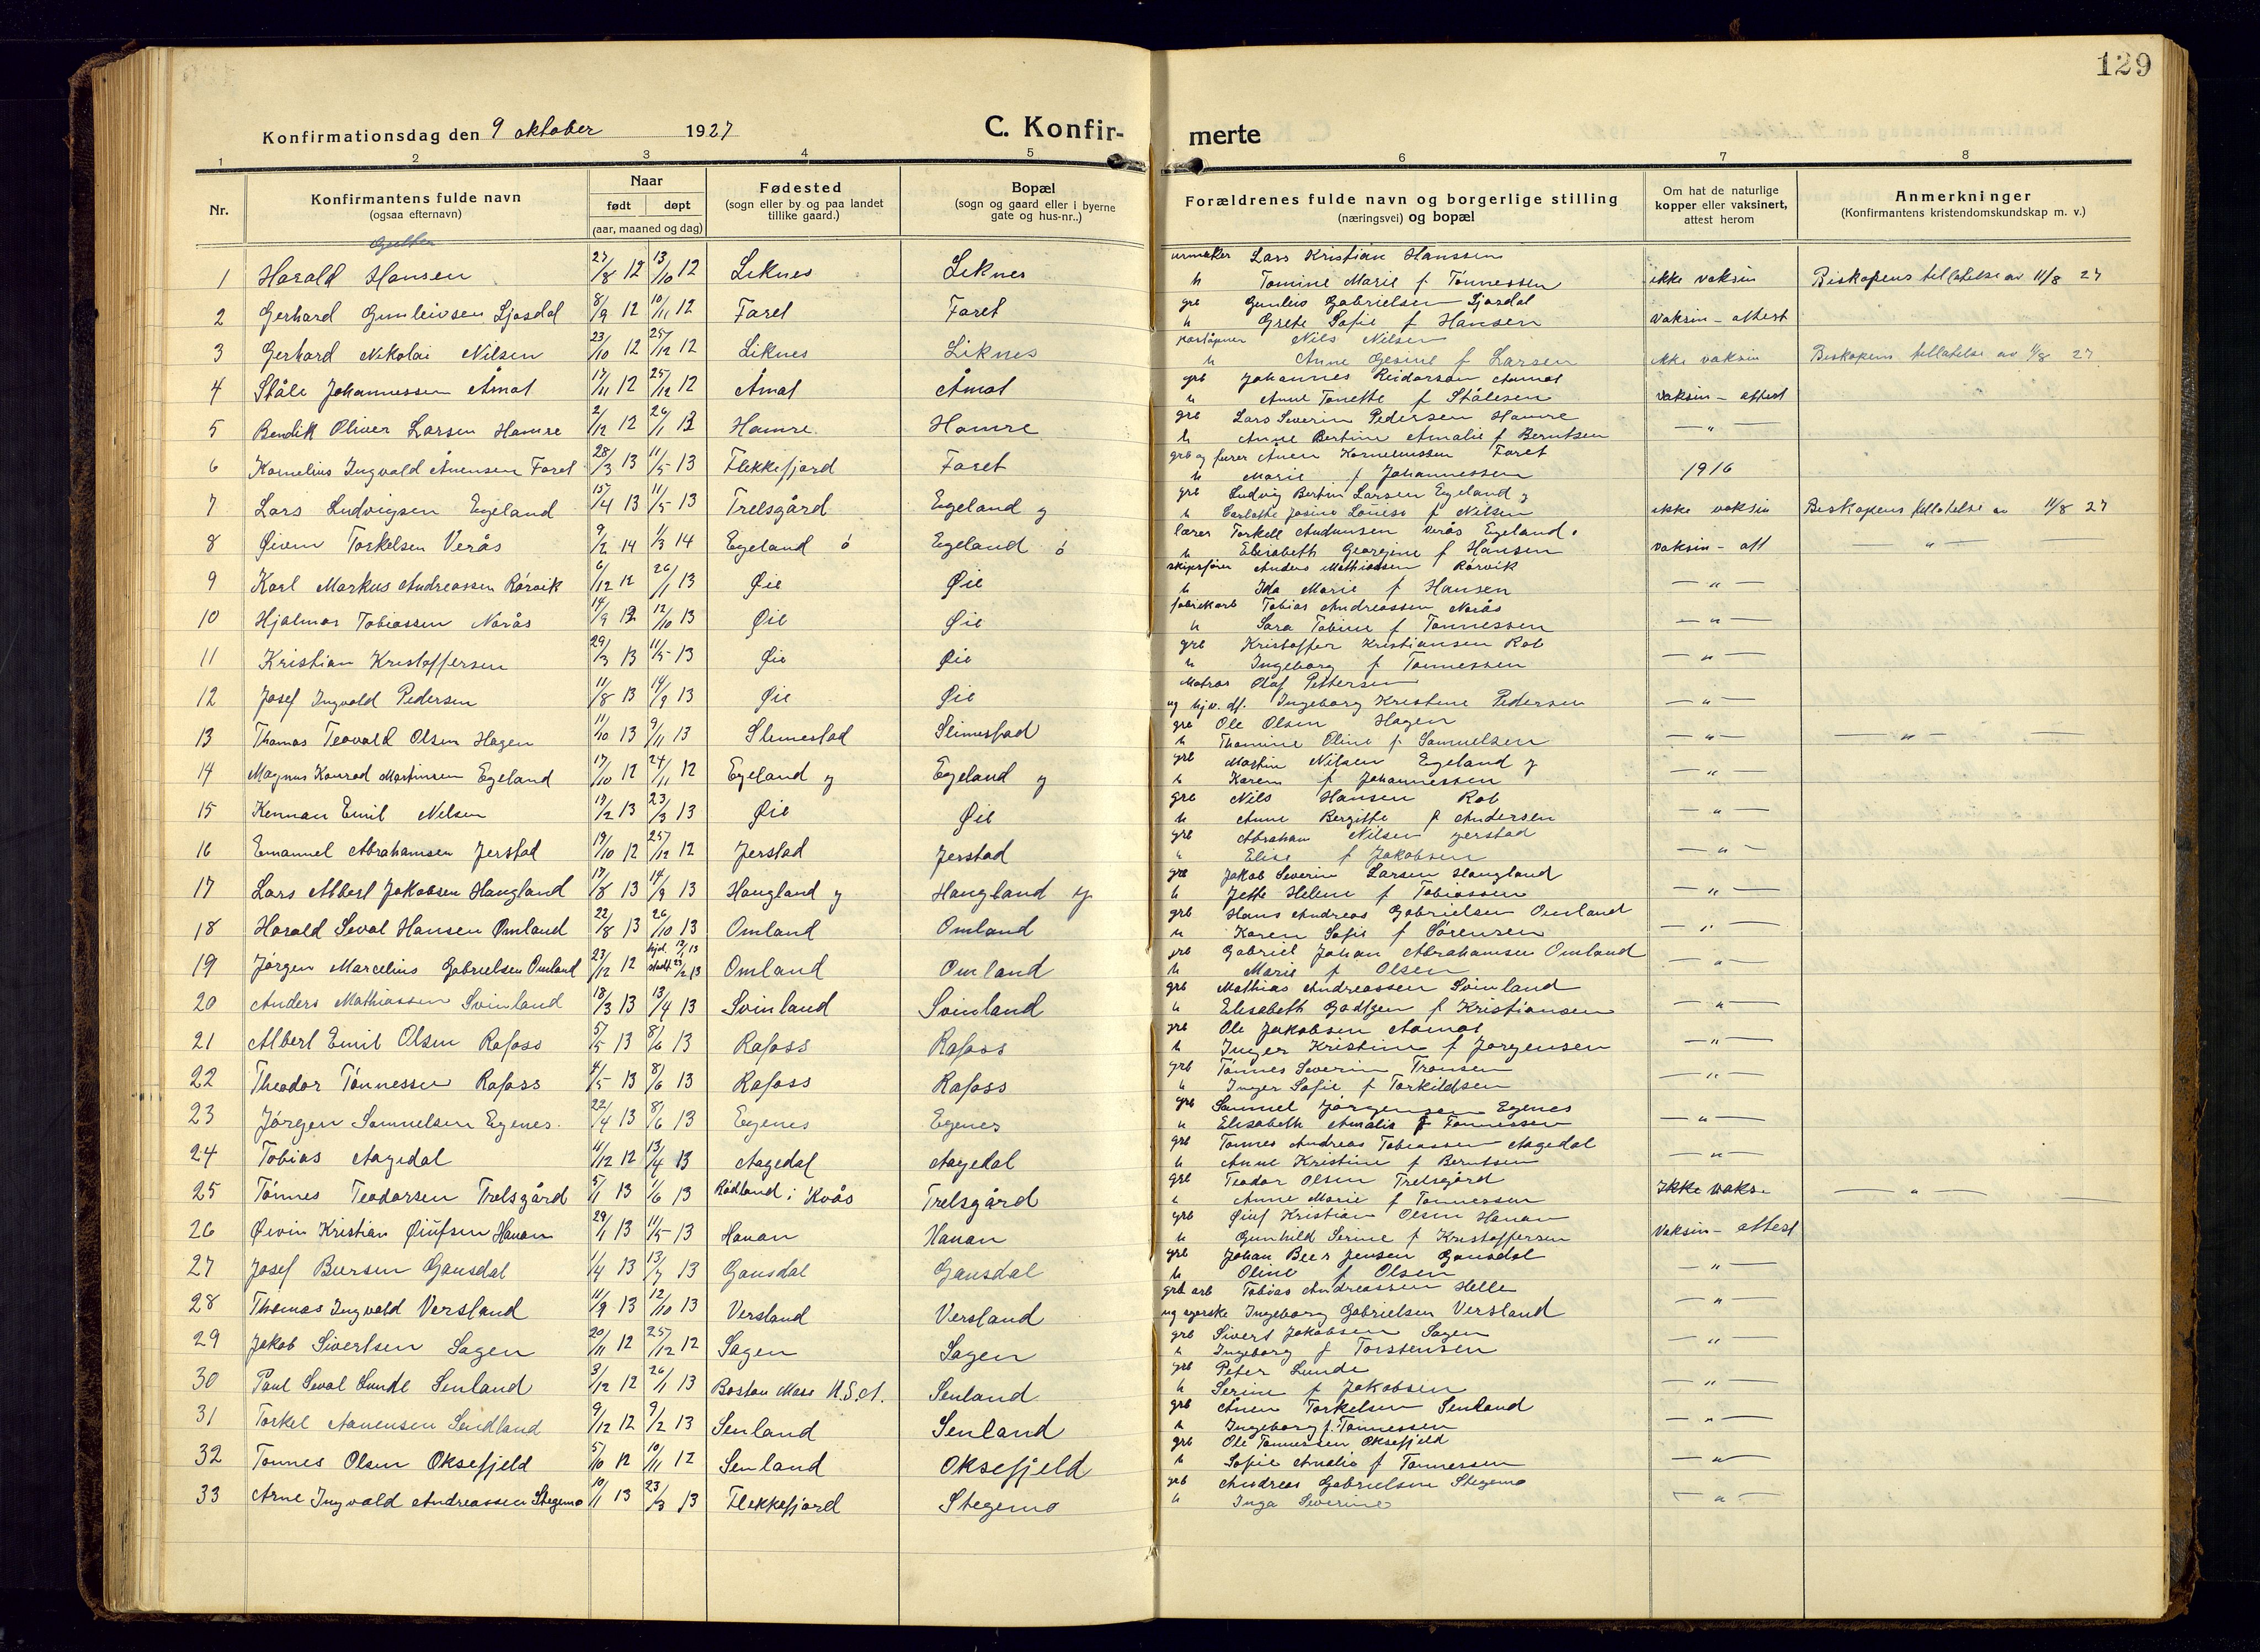 129
Konfirmationsdag den 9 oktober 1927
C. Konfir- merte
1 2 3 4 5 6 7 8
Nr.
Konfirmantens fulde navn
(ogsaa efternavn)
Naar
født døpt
(aar, maaned og dag)
Fødested
(sogn eller by og paa landet
tillike gaard.)
Bopæl
(sogn og gaard eller i byerne
gate og hus-nr..)
Forældrenes fulde navn og borgerlige stilling
(næringsvei) og bopæl
Om hat de naturlige
kopper eller vaksinert,
attest herom
Anmerkninger
(Konfirmantens kristendomskundskap m. v.)
Gutter
1 Harald Hansen 27/8 12 13/10 12 Liknes Liknes urmaker Lars Kristian Hanssen
h Tomine Marie f Tønnessen ikke vaksin Biskopens tillatelse av 11/8 27
2 Gerhard Gunleivsen Ljosdal 8/9 12 10/11 12 Faret Faret grb Gunleiv Gabrielsen Ljosdal
h Grete Sofie f Hansen vaksin - attest
3 Gerhard Nikolai Nilsen 23/10 12 25/12 12 Liknes Liknes poståpner Nils Nilsen
h Anne Gesine f Larsen ikke vaksin Biskopens tillatelse av 11/8 27
4 Ståle Johannessen Åmot 17/11 12 25/12 12 Åmot Åmot grb Johannes Reidarson Aamot
h Anne Tonette f Stålesen vaksin - attest
5 Bendik Oliver Larsen Hamre 2/12 12 26/1 13 Hamre Hamre grb Lars Severin Pedersen Hamre
h Anne Bertine Amalie f Berntsen — " —
6 Kornelius Ingvald Ånensen Faret 28/3 13 11/5 13 Flekkefjord Faret grb og furer Ånen Korneliussen Faret
h Marie f Johannessen 1916
7 Lars Ludvigsen Egeland 15/4 13 11/5 13 Trelsgård Egeland y grb Ludvig Bertin Larsen Egeland y
h Carlotte Josine Louise f Nilsen ikke vaksin Biskopens tillatelse av 11/8 27
8 Øivin Torkelsen Verås 9/2 14 1/3 14 Egeland ó Egeland ó lærer Torkell Audunsen Verås Egeland
h Elisabeth Georgine f Hansen vaksin - att — " —
9 Karl Markus Andreassen Rørvik 6/12 12 26/1 13 Øie Øie skipsfører Anders Mathiassen Rørvik
h Ida Marie f Hansen — " —
10 Hjalmar Tobiassen Norås 14/9 12 12/10 13 Øie Øie fabrikarb Tobias Andreassen Norås
h Sara Tobine f Tønnessen — " —
11 Kristian Kristoffersen 29/3 13 11/5 13 Øie Øie grb Kristoffer Kristiansen Rob
h Ingeborg f Tønnessen — " —
12 Josef Ingvald Pedersen 11/8 13 14/9 13 Øie Øie Matros Olaf Pettersen
ug hjv. dt. Ingeborg Kristine Pedersen — " —
13 Thomas Teovald Olsen Hagen 11/10 13 9/11 13 Slimestad Slimestad grb Ole Olsen Hagen
h Thomine Oline f. Samuelsen — " — — " —
14 Magnus Konrad Martinsen Egeland 17/10 12 24/11 12 Egeland y Egeland y grb Martin Nilsen Egeland y
h Karen f Johannessen — " —
15 Kennan Emil Nilsen 17/2 13 23/3 13 Øie Øie grb Nils Hansen Rob
h Anne Bergitte f Andersen — " —
16 Emanuel Abrahamsen Jerstad 19/10 12 25/12 12 Jerstad Jerstad grb Abraham Nilsen Jerstad
h Elise f Jakobsen — " —
17 Lars Albert Jakobsen Haugland 13/8 13 14/9 13 Haugland y Haugland y grb Jakob Severin Larsen Haugland
h Jette Helene f Tobiassen — " —
18 Harald Seval Hansen Omland 22/8 13 26/10 13 Omland Omland grb Hans Andreas Gabrielsen Omland
h Karen Sofie f Sørensen — " —
19 Jørgen Marcelius Gabrielsen Omland 27/12 12 hjd. 12/1 13 stadf. 23/2 13 Omland Omland grb Gabriel Johan Abrahamsen Omland
h Marie f Olsen — " —
20 Anders Mathiassen Svinland 18/3 13 13/4 13 Svinland Svinland grb Mathias Andreassen Svinland
h Elisabeth f Kristiansen — " —
21 Albert Emil Olsen Rafoss 5/5 13 8/6 13 Rafoss Rafoss grb Ole Jakobsen Aamot
h Inger Kristine f Jørgensen — " —
22 Theodor Tønnessen Rafoss 4/5 13 8/6 13 Rafoss Rafoss grb Tønnes Severin Tronsen
h Inger Sofie f Torkildsen — " —
23 Jørgen Samuelsen Egenes. 22/4 13 8/6 13 Egenes Egenes grb Samuel Jørgensen Egenes
h Elisabeth Amalia f Tønnessen — " —
24 Tobias Aagedal 11/12 12 13/4 13 Aagedal Aagedal grb Tønnes Andreas Tobiassen Aagedal
h Anne Kristine f Berntsen — " —
25 Tønnes Teodorsen Trelsgård 5/1 13 1/6 13 Rødland i Kvås Trelsgård grb Teodor Olsen Trelsgård
h Anne Marie f Tønnessen Ikke vaks. — " —
26 Øivin Kristian Øiufsen Hanan 29/1 13 11/5 13 Hanan Hanan grb Øiuf Kristian Olsen Hanan
h Gunhild Serine f Kristoffersen Vaksin - attest
27 Josef Beersen Gausdal 1/4 13 13/7 13 Gausdal Gausdal grb Johan Beer Jensen Gausdal
h Oline f Olsen — " —
28 Thomas Ingvald Versland 11/9 13 12/10 13 Versland Versland grb arb Tobias Andreassen Helle
ug agerske Ingeborg Gabrielsen Versland — " —
29 Jakob Sivertsen Sagen 20/11 12 25/12 12 Sagen Sagen grb Sivert Jakobsen Sagen
h Ingeborg f Torstensen — " —
30 Paul Seval Lunde Senland 3/12 12 26/1 13 Boston Mass U.S.A. Senland grb Peter Lunde
h Serine f Jakobsen — " —
31 Torkel Aanensen Sendland 9/12 12 9/2 13 Senland Senland grb Ånen Torkelsen Senland
h Ingeborg f. Tønnessen — " —
32 Tønnes Olsen Oksefjeld 5/10 12 10/11 12 Senland Oksefjeld grb Ole Tønnessen Oksefjeld
h Sofie Amalia f Tønnessen — " —
33 Arne Ingvald Andreassen Stegemo 10/1 13 23/3 13 Flekkefjord Stegemo grb Andreas Gabrielsen Stegemo
h Inga Severine — " —